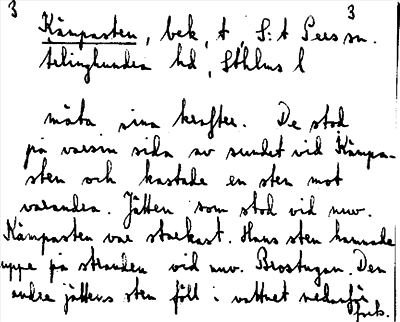 3 3
Kämpasten, bek, t, S:t Pers sn.
telinghundra hd, Sthlms l
mäta sina krafter. De stod
på varsin sida av sundet vid Kämpa-
sten och kastade en sten mot
varandra. Jätten som stod vid nuv.
Kämpasten var starkast. Hans sten hamnade
uppe på stranden vid nuv. Brostugan. Den
andre jättens sten föll i vattnet nedanför
forts.